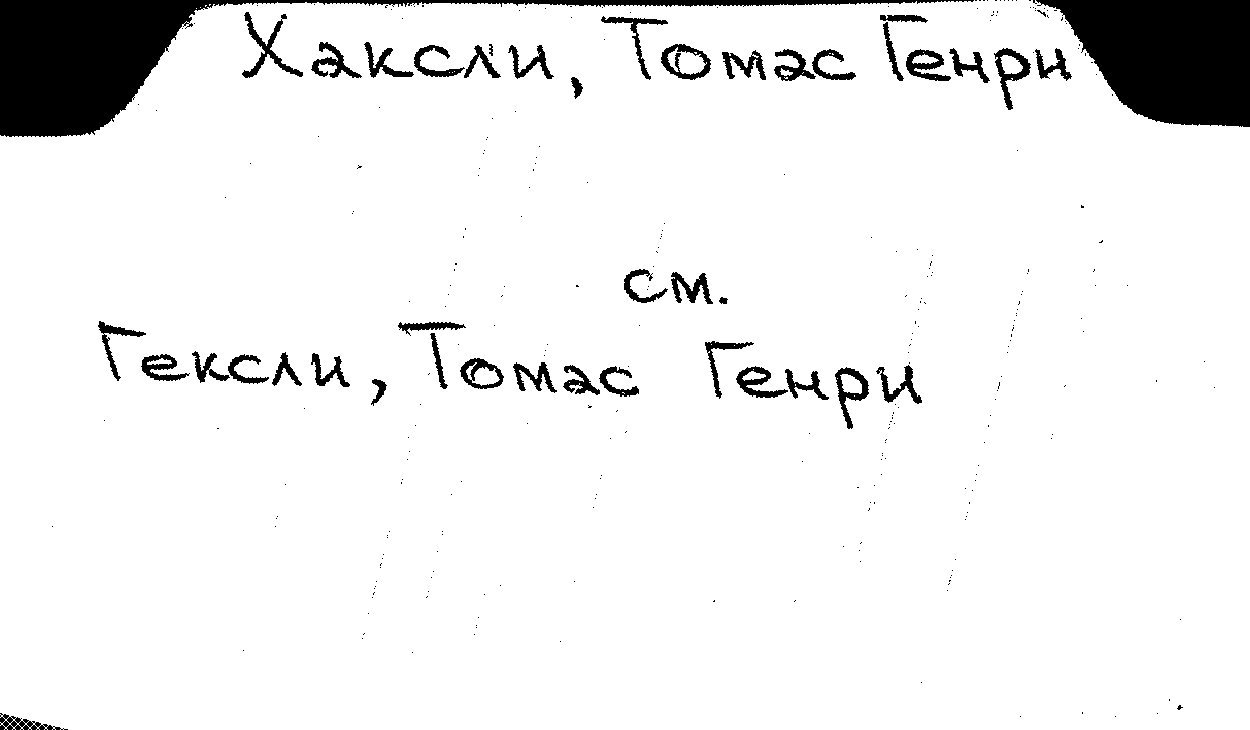 Хаксли, Томас Генри
см.
Гексли, Томас Генри